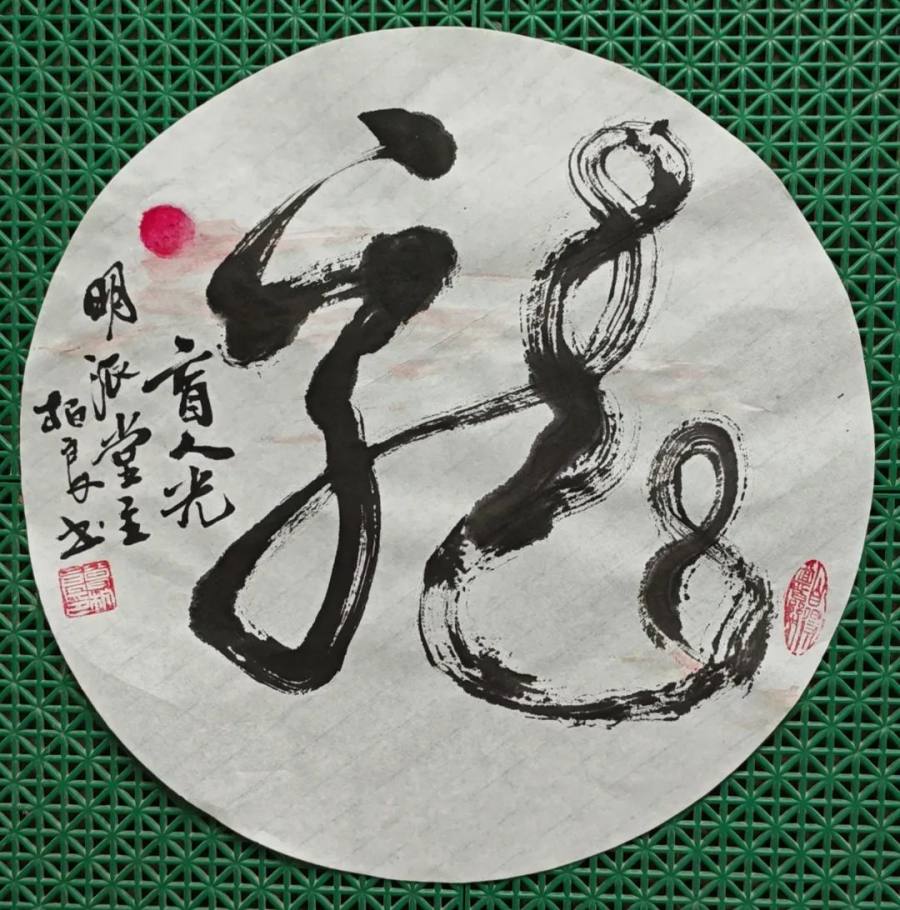 龙
盲人光
明派堂主
柏良书